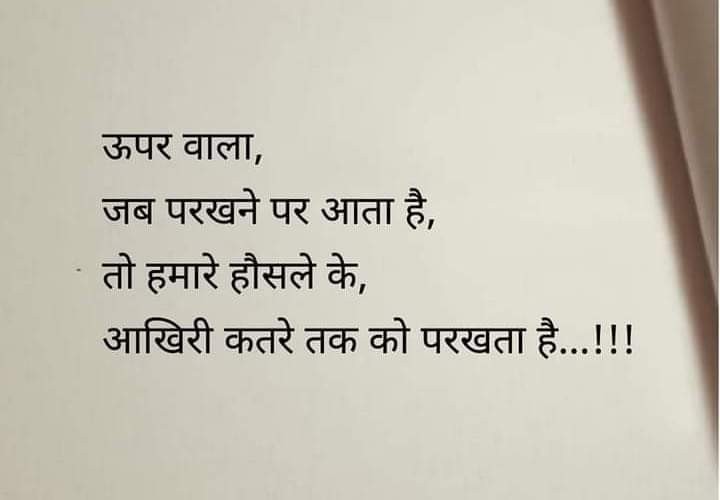 ऊपर वाला,
जब परखने पर आता है,
तो हमारे हौसले के,
आखिरी कतरे तक को परखता है...!!!